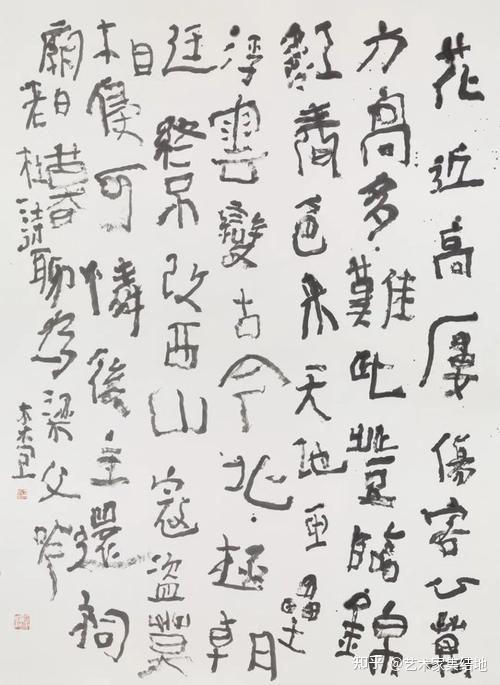 花近高樓傷客心萬
方高多難此登臨錦
江春色来天地玉壘
浮雲變古今北極朝
廷終不改西山寇盜莫
相侵可憐後主還祠
廟日暮聊為梁父吟
知乎 @艺术家集结地